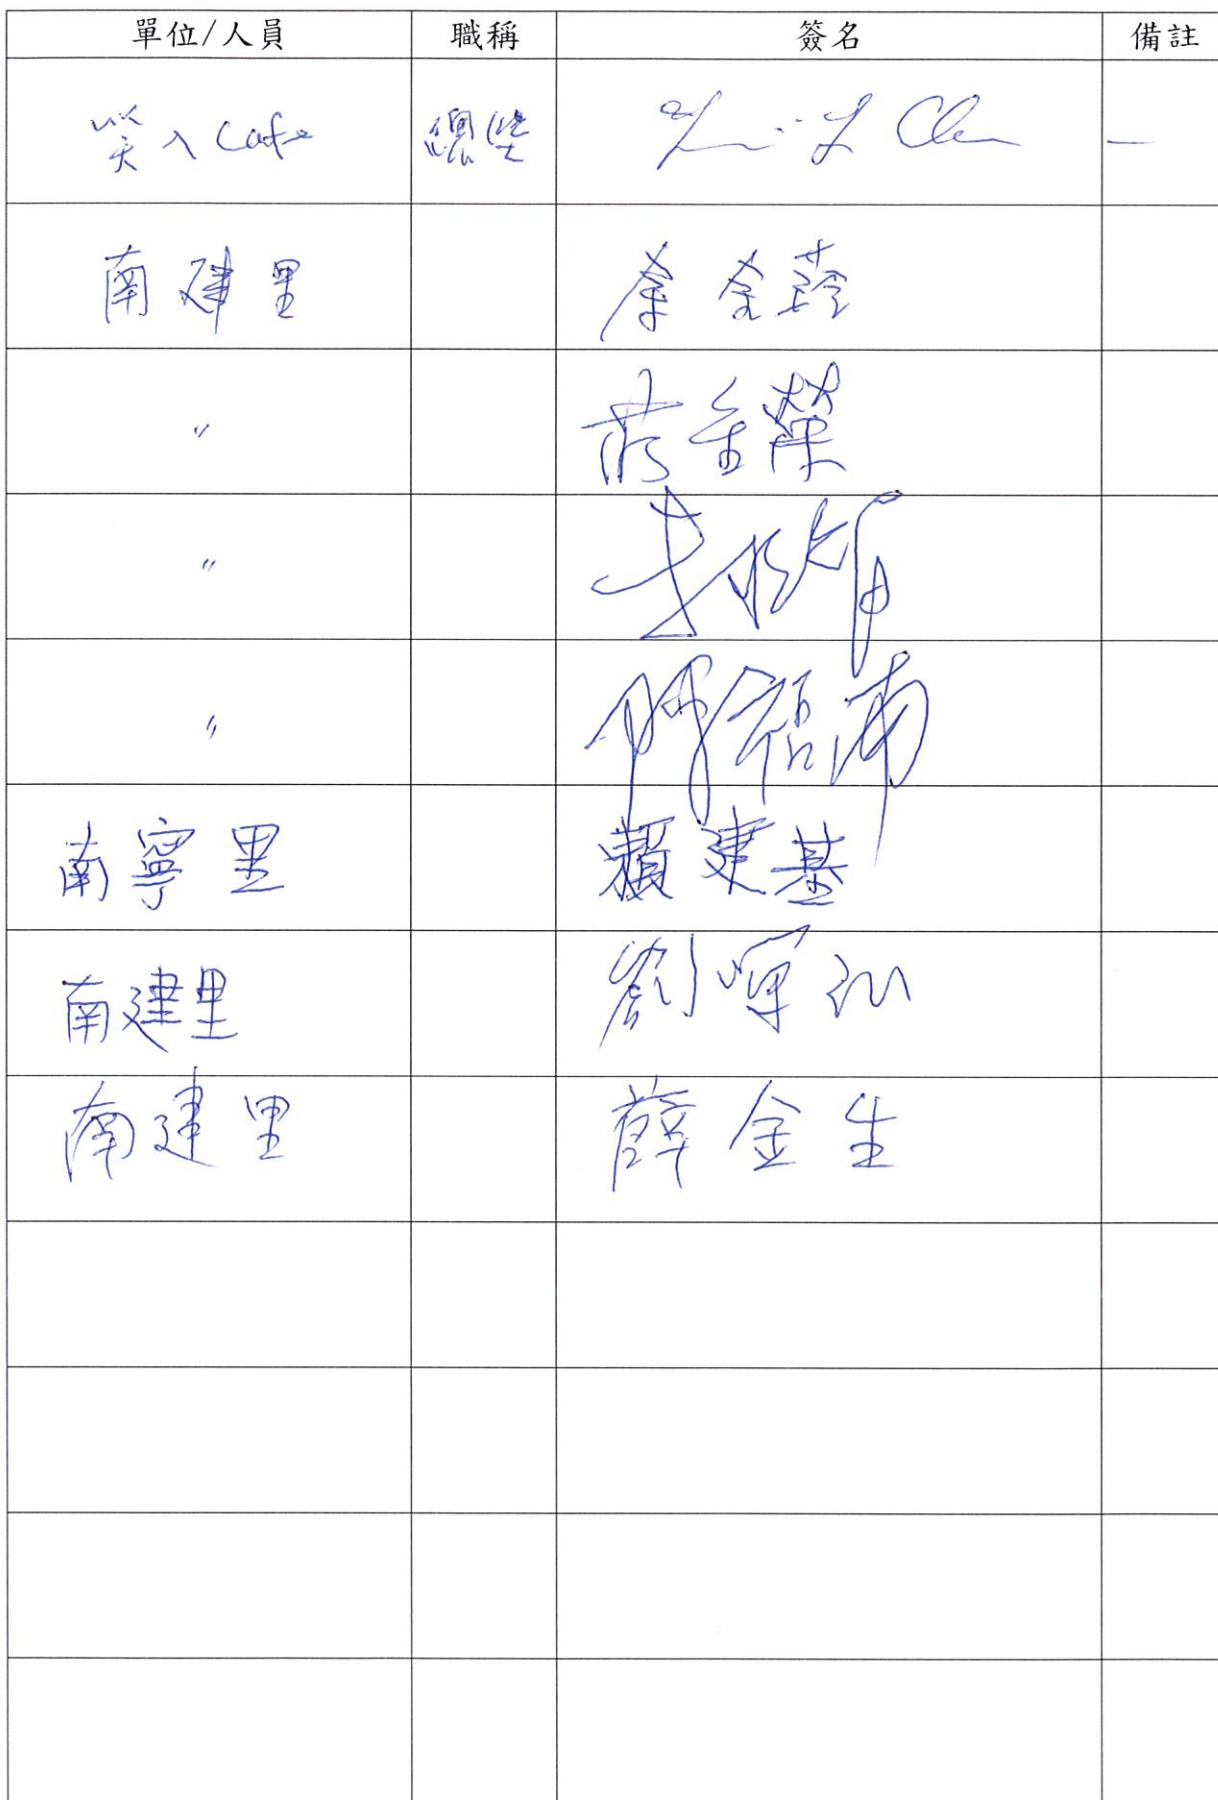 單位/人員 職稱 簽名 備註
笑入Cafe 總監 —
南建里
〃 蔡金榮
〃
〃 陳福南
南寧里 賴建基
南建里 劉暉
南建里 薛金生